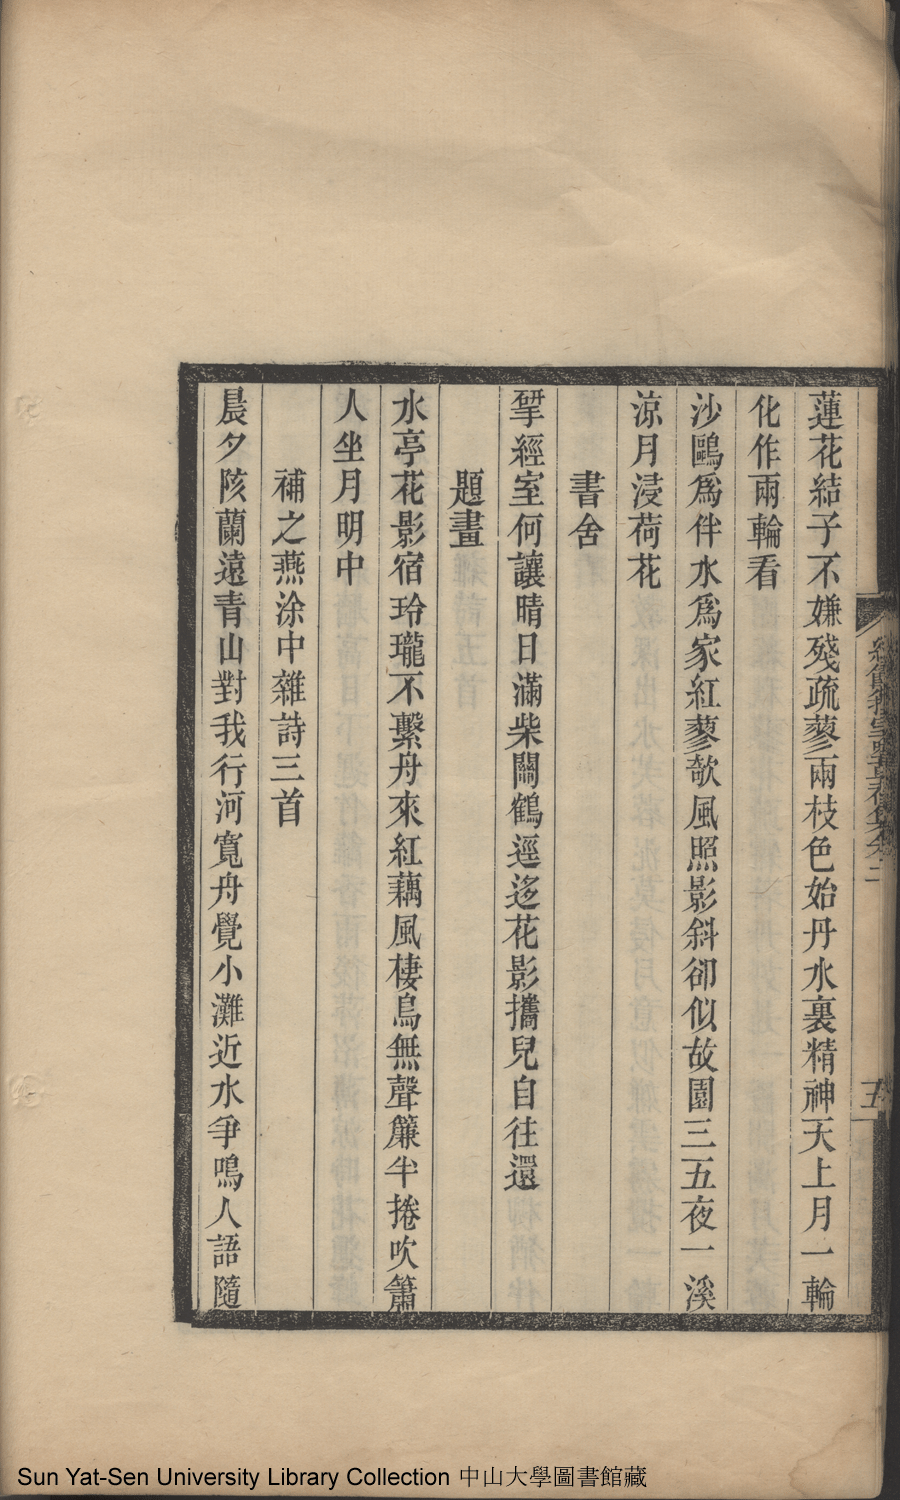 蓮花結子不嫌殘疏蓼兩枝色始丹水裏精神天上月一輪
化作兩輪看
沙鷗爲伴水爲家紅蓼欹風照影斜卻似故園三五夜一溪
涼月浸荷花
書舍
揅經室何讓晴日滿柴關鶴逕迻花影攜兒自往還
題畫
水亭花影宿玲瓏不繫舟來紅藕風棲鳥無聲簾半捲吹簫
人坐月明中
補之燕涂中雜詩三首
晨夕陔蘭遠青山對我行河寬舟覺小灘近水爭鳴人語隨
五
Sun Yat-Sen University Library Collection 中山大學圖書館藏